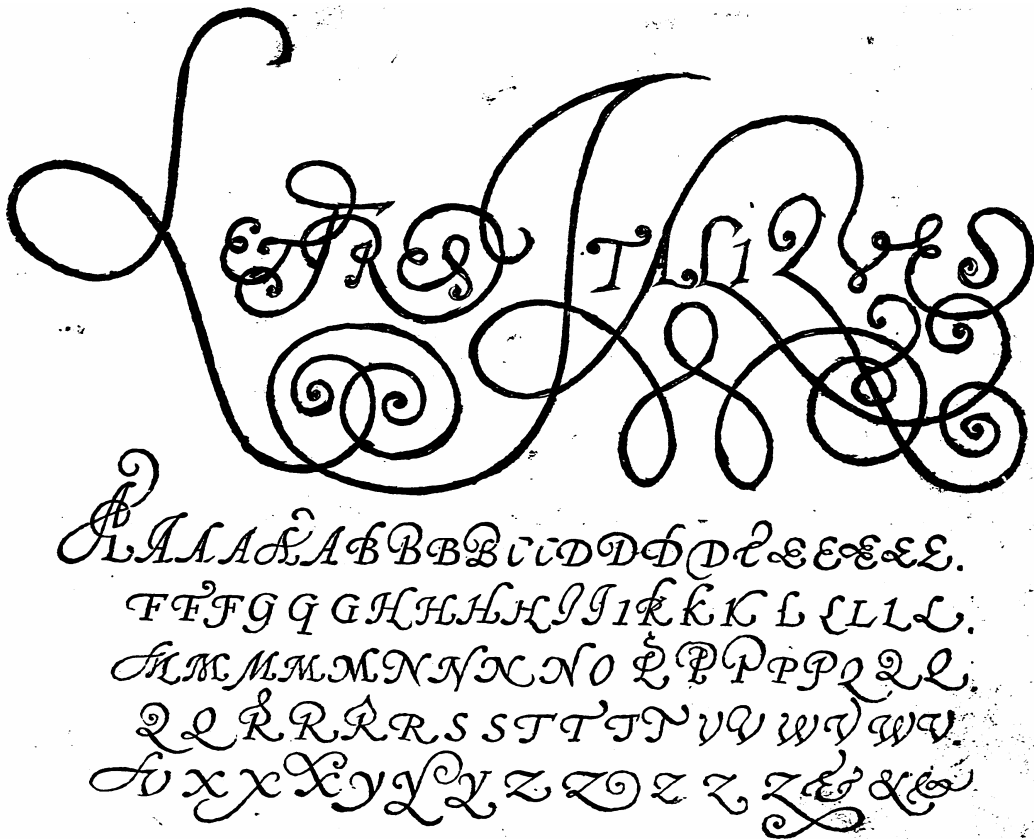 LETRES ITALIQVES
A A A A A A B B B B C C D D D D E E E E E E.
F F F G G G H H H H I I I K K K L L L L L.
M M M M M N N N N O P P P P P Q Q Q
Q Q R R R R S S T T T T V V W V W V
V X X X Y Y Y Z Z Z Z Z & & &